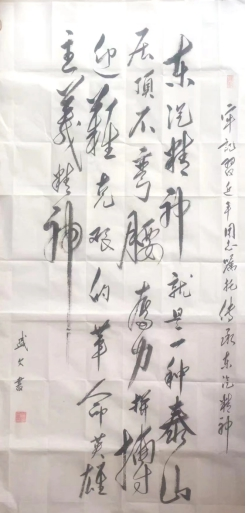 牢记习近平同志嘱托传承东汽精神
东汽精神就是一种泰山
压顶不弯腰奋力拼搏
迎难克艰的革命英雄
主义精神
武文书